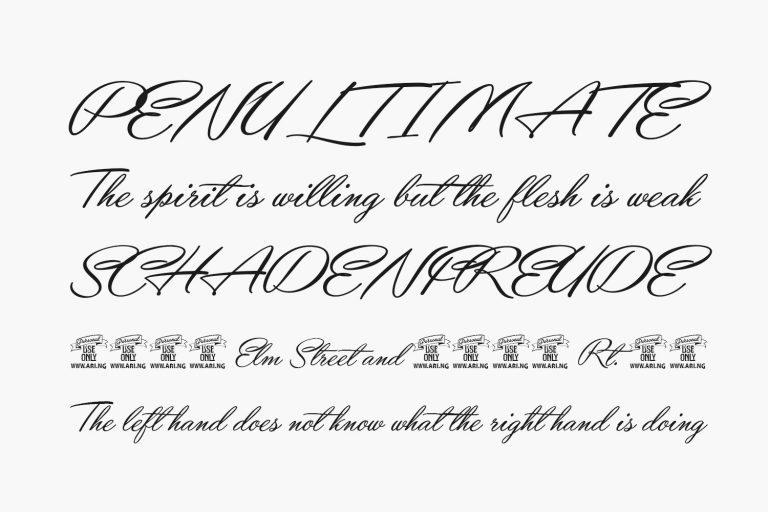 PENULTIMATE
The spirit is willing but the flesh is weak
SCHADENFREUDE
Personal USE ONLY WWW.ARI.NG Personal USE ONLY WWW.ARI.NG Personal USE ONLY WWW.ARI.NG Personal USE ONLY WWW.ARI.NG Elm Street and Personal USE ONLY WWW.ARI.NG Personal USE ONLY WWW.ARI.NG Personal USE ONLY WWW.ARI.NG Personal USE ONLY WWW.ARI.NG Rt. Personal USE ONLY WWW.ARI.NG Personal USE ONLY WWW.ARI.NG
The left hand does not know what the right hand is doing